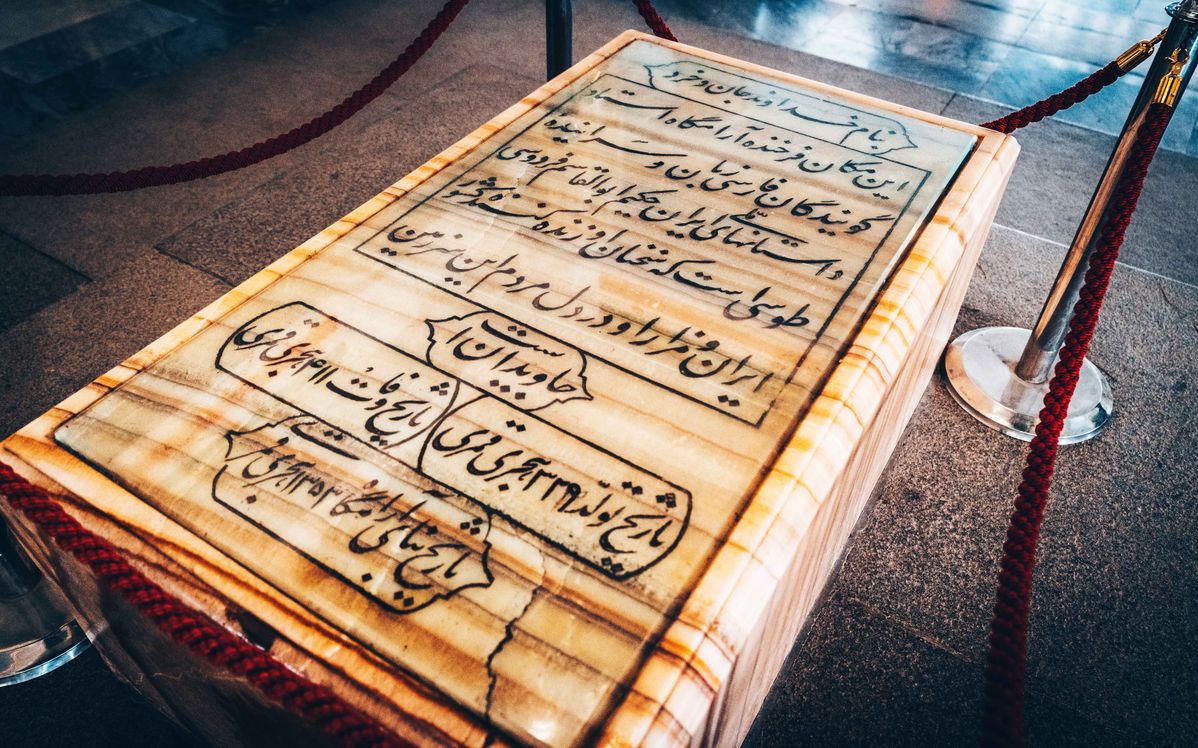 بنام خداوند جان و خرد
این مکان فرخنده آرامگاه استاد
گویندگان فارسی زبان و سراینده
داستانهای ملی ایران حکیم ابوالقاسم فردوسی
طوسی است که سخنان او زنده کننده کشور
ایران و مزار او در دل مردم این سرزمین
جاویدان است
تاریخ تولد ۳۲۹ هجری قمری
تاریخ وفات ۴۱۱ هجری قمری
تاریخ بنای آرامگاه ۱۳۵۳ هجری